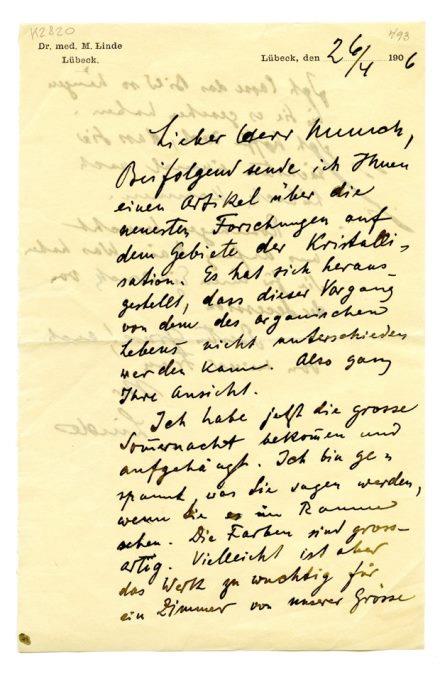 K2820
793
Dr. med. M. Linde
Lübeck.
Lübeck, den 26/4 1906
Lieber Herr Munch,
Beifolgend sende ich Ihnen
einen Artikel über die
neuesten Forschungen auf
dem Gebiete der Kristalli-
sation. Es hat sich heraus-
gestellt, dass dieser Vorgang
von dem des organischen
Lebens nicht unterschieden
werden kann. Also ganz
Ihre Ansicht.
Ich habe jetzt die grosse
Sommernacht bekommen und
aufgehängt. Ich bin ge-
spannt, was Sie sagen werden,
wenn Sie es im Raume
sehen. Die Farben sind gross-
artig. Vielleicht ist aber
das Werk zu wuchtig für
ein Zimmer von unserer Grösse